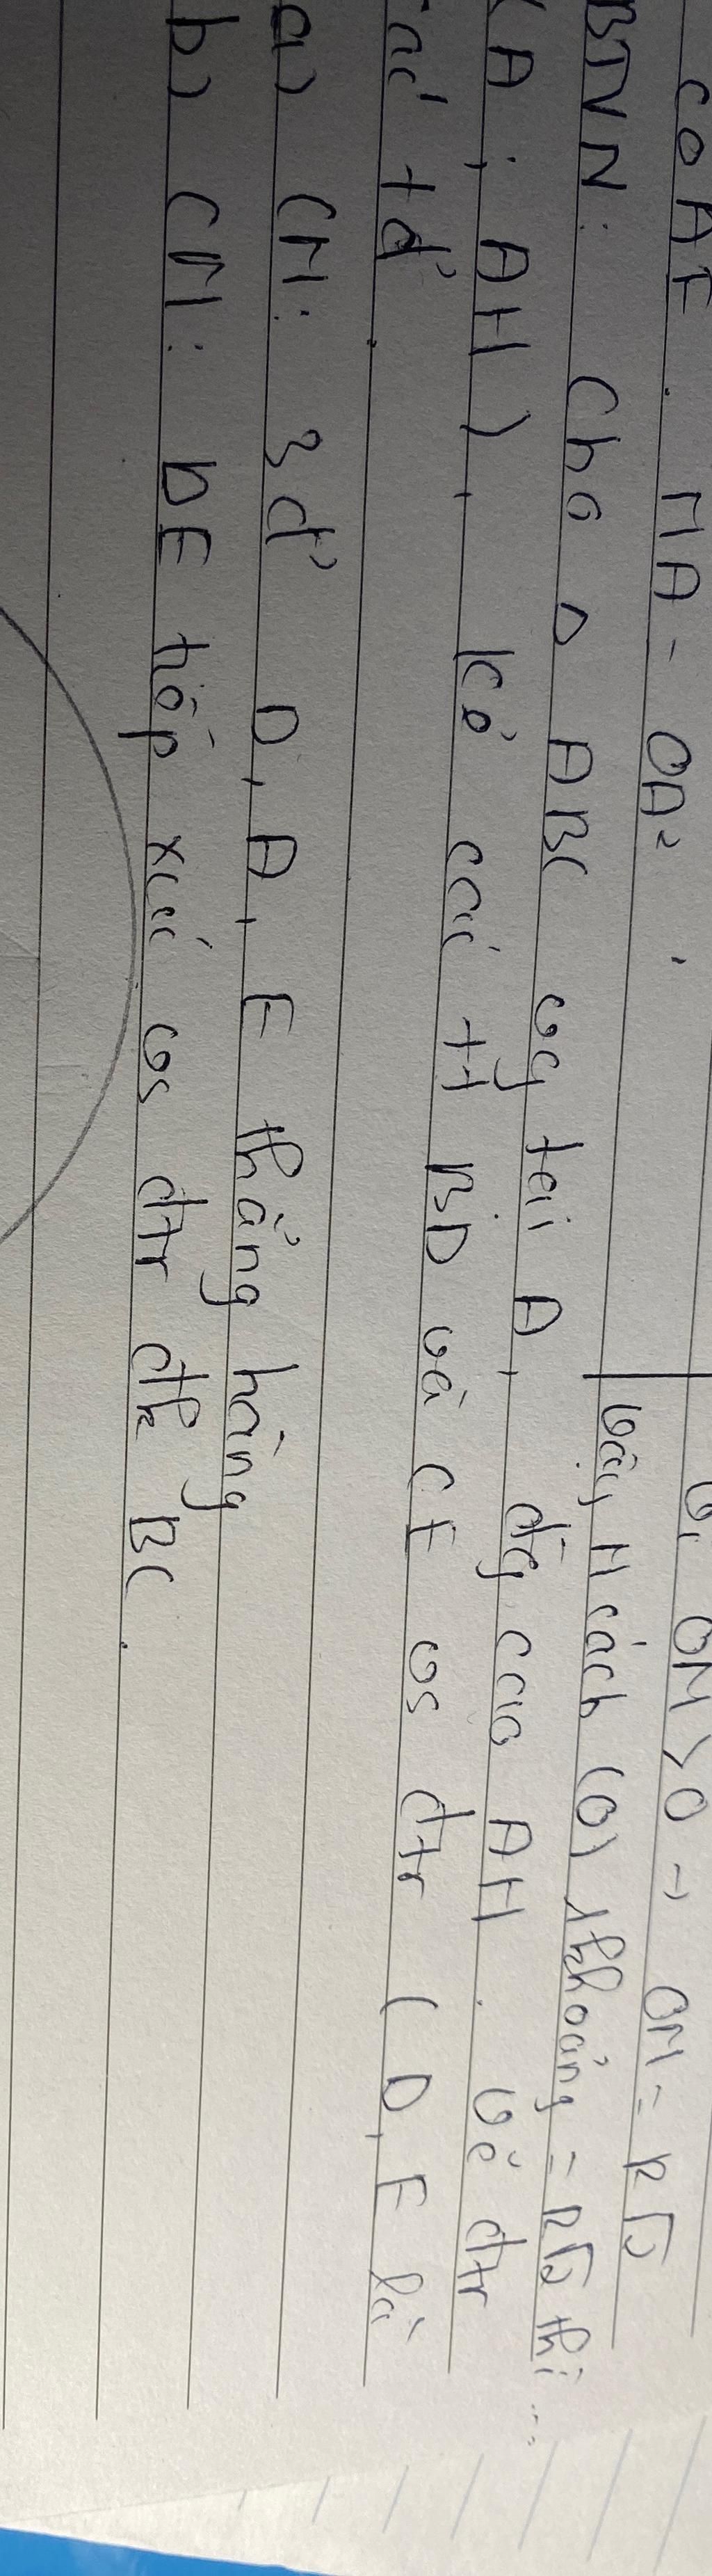 COAE. MA - OA²
Vì OM > 0 → OM = R√2
Vậy M cách (O) 1 khoảng = R√2 thì ...
BTVN: Cho Δ ABC vg tại A, đg cao AH. Vẽ đtr
(A; AH), kẻ các tt BD và CE vs đtr (D, E là
các tđ'
a) CM: 3đ' D, A, E thẳng hàng
b) CM: DE tiếp xúc vs đtr đk BC.